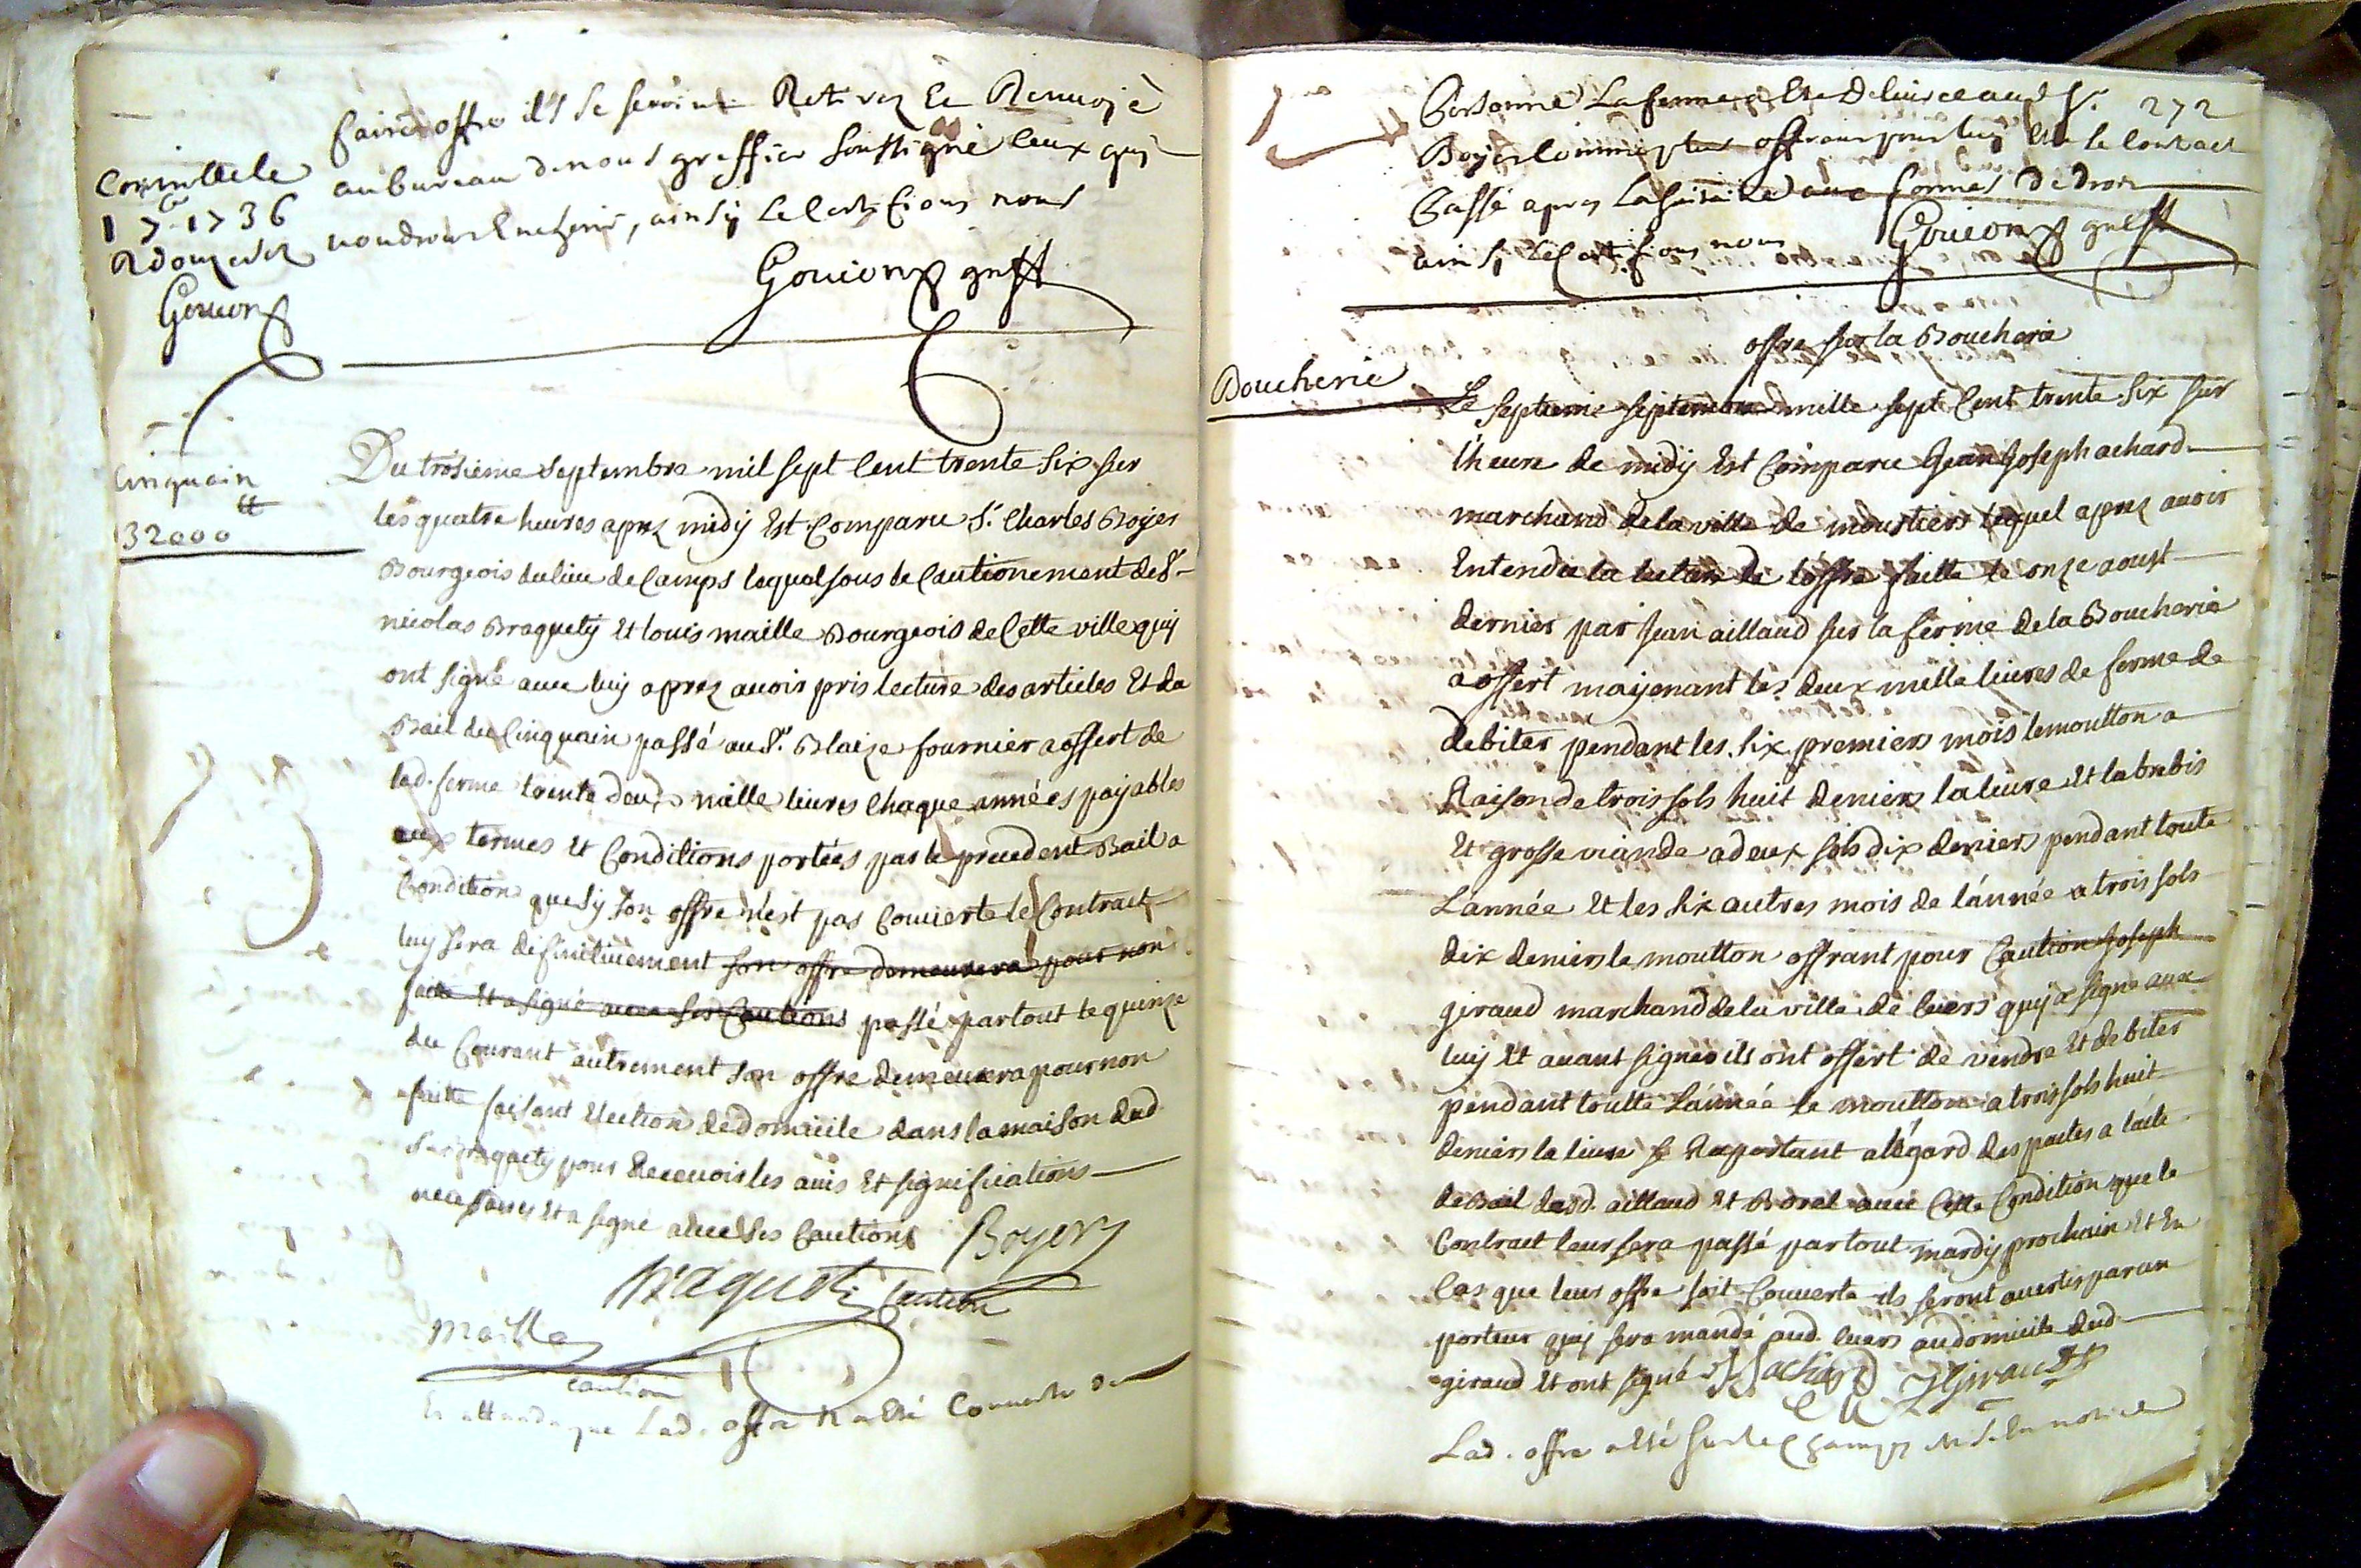 faire offre ils se seroint Retirez Et Renvoyé
au bureau de nous greffier soussigné ceux quy
voudront Encherir, ainsy Le Certifions nous
Gouion greff
Controllé le
1736
Gouion
Cinquain
32000 tt
Du trosieme septembre mil sept Cent trente six sur
les quatre heures aprez midy Est Comparu Sr. Charles Boyer
Bourgeois du lieu de Camps lequel sous le Cautionement de Sr
nicolas Braquety Et louis maille Bourgeois de Cette ville quy
ont signé avec luy aprez avoir pris lecture des articles Et du
Bail du Cinquain passé au Sr. Blaize fournier a offert de
lad. ferme trente deux mille livres Chaque années payables
aux termes Et Conditions portées par le precedent Bail a
Condition que sy son offre n'est pas Couverte le Contract
luy sera definitivement son offre demeurera pour non
faite Et a signé avec ses Cautions passé par tout le quinze
du Courant autrement son offre demeurera pour non
faite faisant Election de domicile dans la maison dud
Sr Braquety pour Recevoir les avis Et significations
necessaires Et a signé avec ses Cautions Boyer
Braquety Caution
Maille
caution
Et attendu que Lad. offre n'a Eté Couverte de
272
Personne La ferme a Eté Delivrée aud Sr.
Boyer Comme plus offrant pour luy Etre le Contract
Passé apres La aux formes De droit
ainsi Le Certifions nous Gouion greff
offre sur la Boucherie
Boucherie
Le septieme septembre mille sept Cent trente six sur
l'heure de midy Est Comparu Jean Joseph achard
marchand de la ville de moustiers lequel aprez avoir
Entendu la lecture de l'offre faitte le onze aoust
dernier par Jean aillaud sur la ferme de la Boucherie
a offert moyenant les deux mille livres de ferme de
debiter pendant les six premiers mois le moutton a
Raison de trois sols huit deniers la livre Et la brebis
Et grosse viande a deux sols dix deniers pendant toute
L'année Et les six autres mois de l'année a trois sols
dix deniers le moutton offrant pour Caution Joseph
giraud marchand de la ville de Cuers quy a signé avec
luy Et avant signer ils ont offert de vendre Et debiter
pendant toutte L'année le moutton a trois sols huit
deniers la livre se Raportant a l'égard des pactes a l'acte
de Bail desd. aillaud Et Boral avec Cette Condition que le
Contract leur sera passé par tout mardy prochain Et En
Cas que leur offre soit Couverte ils seront avertis par un
porteur quy sera mandé aud. Cuers au domicile dud
giraud Et ont signé JJ achard J Giraud
Lad. offre a Eté sur le Champ